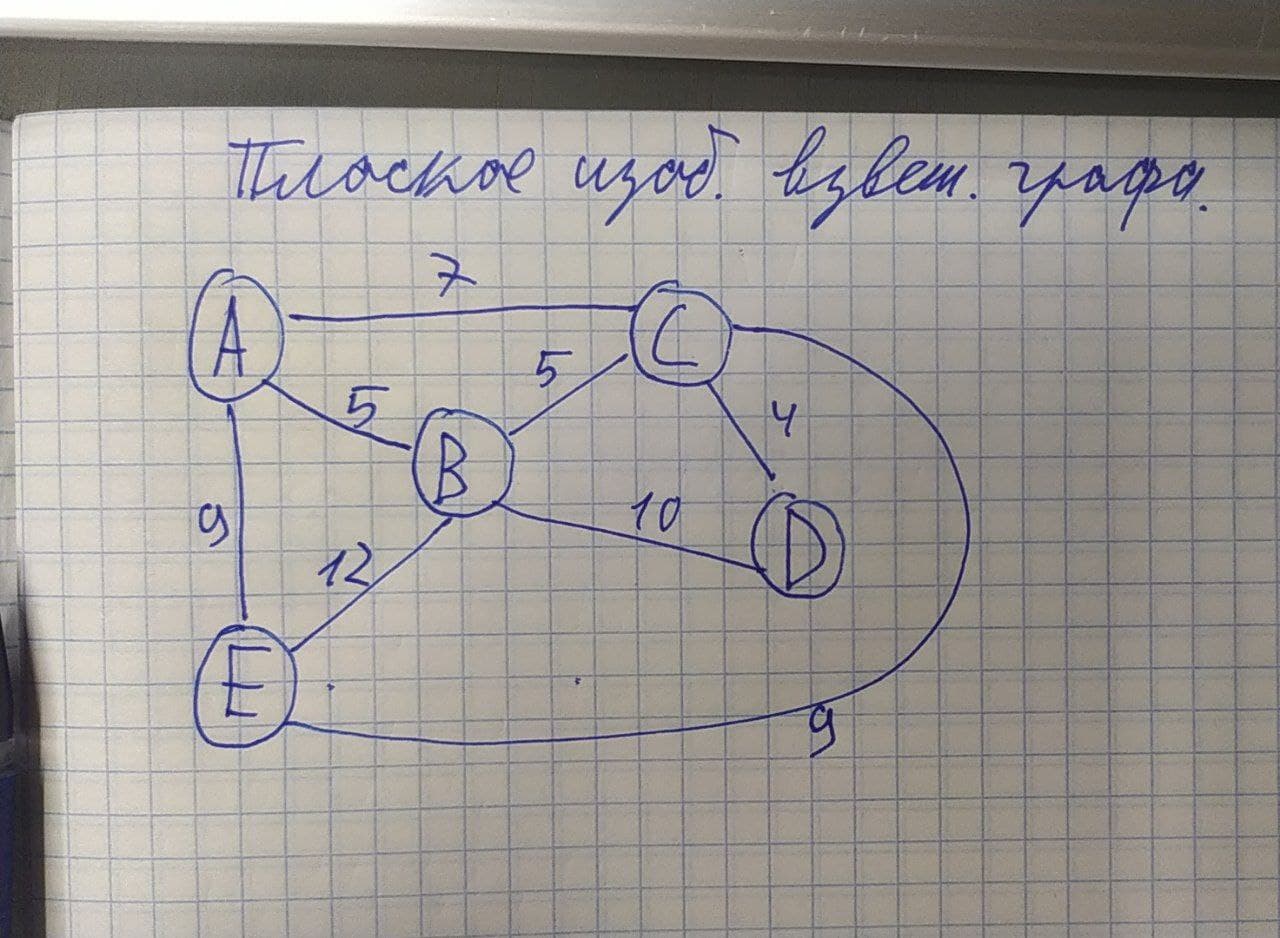 Плоское изоб. взвеш. графа.
7
A
C
5
5
4
B
9
10
12
D
E
9